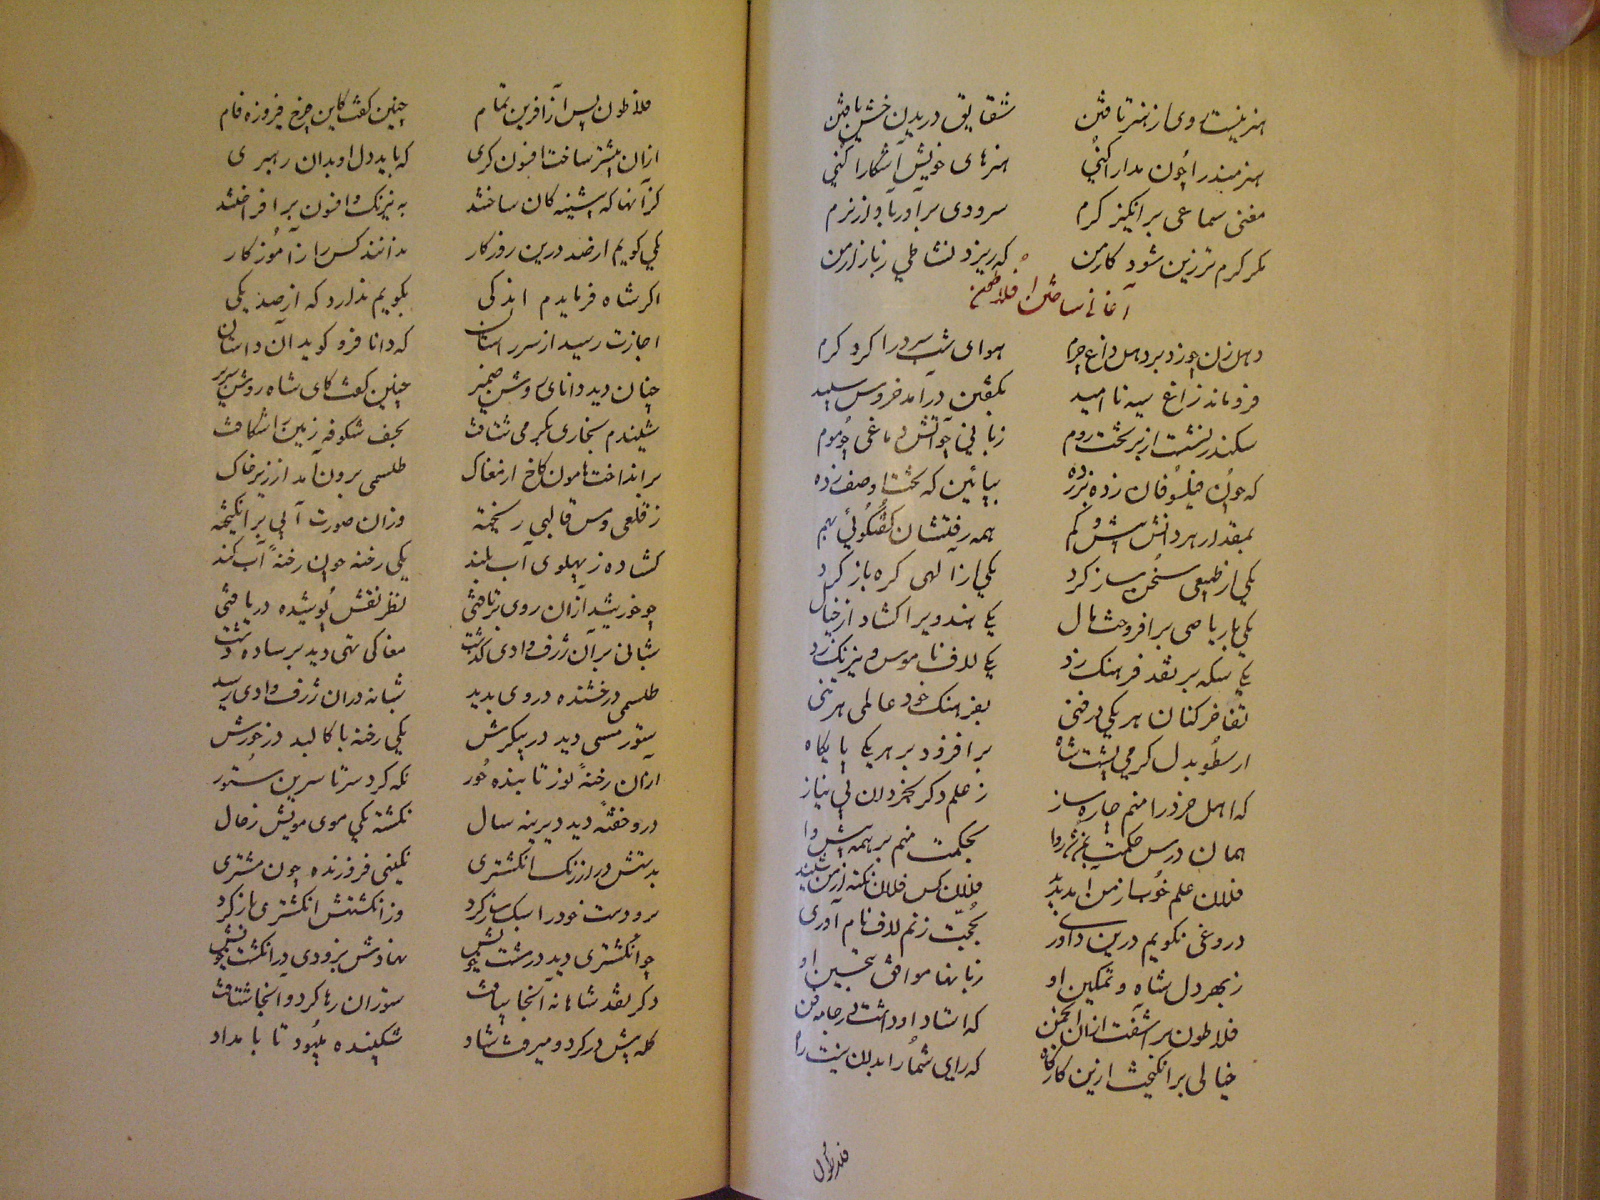 هنر نیست روی از هنر تافتن شقایق دریدن خشن بافتن
هنرمند را چون مدارا کنی هنرهای خویش آشکارا کنی
مغنی سماعی برانگیز گرم سرودی برآور بآواز نرم
مگر گرم تر زین شود کار من که ریزد نشاطی ز بازار من
اغانی ساختن افلاطون
دهل زن چو زد بر دهل داغ چرم هوای شب سرد را کرد گرم
فروماند زاغ سیه ناامید بگفتن درآمد خروس سپید
سکندر نشست از بر تخت روم زبانی چو آتش دماغی چو موم
که چون فیلسوفان زده بر زده بپائین گه تخت او صف زده
بمقدار هر دانش بیش و کم همه رفتشان گفتگوئی بهم
یکی از طبیعی سخن ساز کرد یکی از آلهی گره باز کرد
یکی با ریاضی برافروخت بال یکی هندویرا گشاد از خیال
یکی سکه بر نقد فرهنگ زد یکی لاف ناموس و نیرنگ زد
تفاخر کنان هر یکی در فنی بفرهنگ خود عالمی هر تنی
ارسطو بدل گرمی پشت شاه برافزود بر هر یکی پایگاه
که اهل خرد را منم چاره ساز ز علم دگر بخردان بی نیاز
همان درس حکمت روا بحکمت منم بر همه پیشوا
فلان علم خوب از من آمد پدید فلان کس فلان نکته از من شنید
دروغی نگویم درین داوری بحجت زنم لاف نام آوری
ز بهر دل شاه و تمکین او زبانها موافق بتحسین او
فلاطون برآشفت ازان انجمن که استاد او داشت در جامه فن
خیالی برانگیخت ازین کارگاه که رای شما را بدان نیست راه
فلاطون پس از آفرین تمام چنین گفت کاین چرخ فیروزه فام
ازان پیشتر ساخت افسون گری که یابد دل او بدان رهبری
گر آنها که پیشینه گان ساختند به نیرنگ و افسون برافراختند
یکی گویم ار صد درین روزگار ندانند کس را ز آموزگار
اگر شاه فرمایدم اندکی بگویم ندارد که از صد یکی
اجازت رسید از سر راستان که دانا فرو گوید آن داستان
چنان دید دانای روشن ضمیر چنین گفت کای شاه روشن سریر
شنیدم بخاری بگرمی شتافت بجف شکوفه زمین را شکافت
برانداخت هامون کلاخ از مغاک طلسمی برون آمد از زیر خاک
ز قلعی و مس قالبی ریخته وزان صورت آلی برانگیخته
گشاده ز پهلوی آب بلند یکی رخنه چون رخنهٔ آب کند
چو خورشید ازان روی برتافتی نظر نقش پوشیده دریافتی
شبانی بر آن ژرف وادی گذشت مغاکی تهی دید بر ساده دشت
طلسمی درخشنده در وی بدید شبانه دران ژرف وادی رسید
ستور مسی دید در پیکرش یکی رخنه با کالبد در خورش
ازان رخنهٔ نور تابنده خور نگه کرد سر تا سرین ستور
درو خفته دید دیرینه سال نگشته یکی موی مویش ز حال
بدستش در از رنگ انگشتری نگینی فروزنده چون مشتری
برو دست خود را سبک ساز کرد وز انگشتش انگشتری باز کرد
چو انگشتری دید در مشت خویش نهادش بزودی در انگشت خویش
دگر نقد شاهانه آنجا نیافت ستوران رها کرد و آنجا شتافت
گله پیش در کرد و میرفت شاد شکیبنده میبود تا بامداد
فلاطون